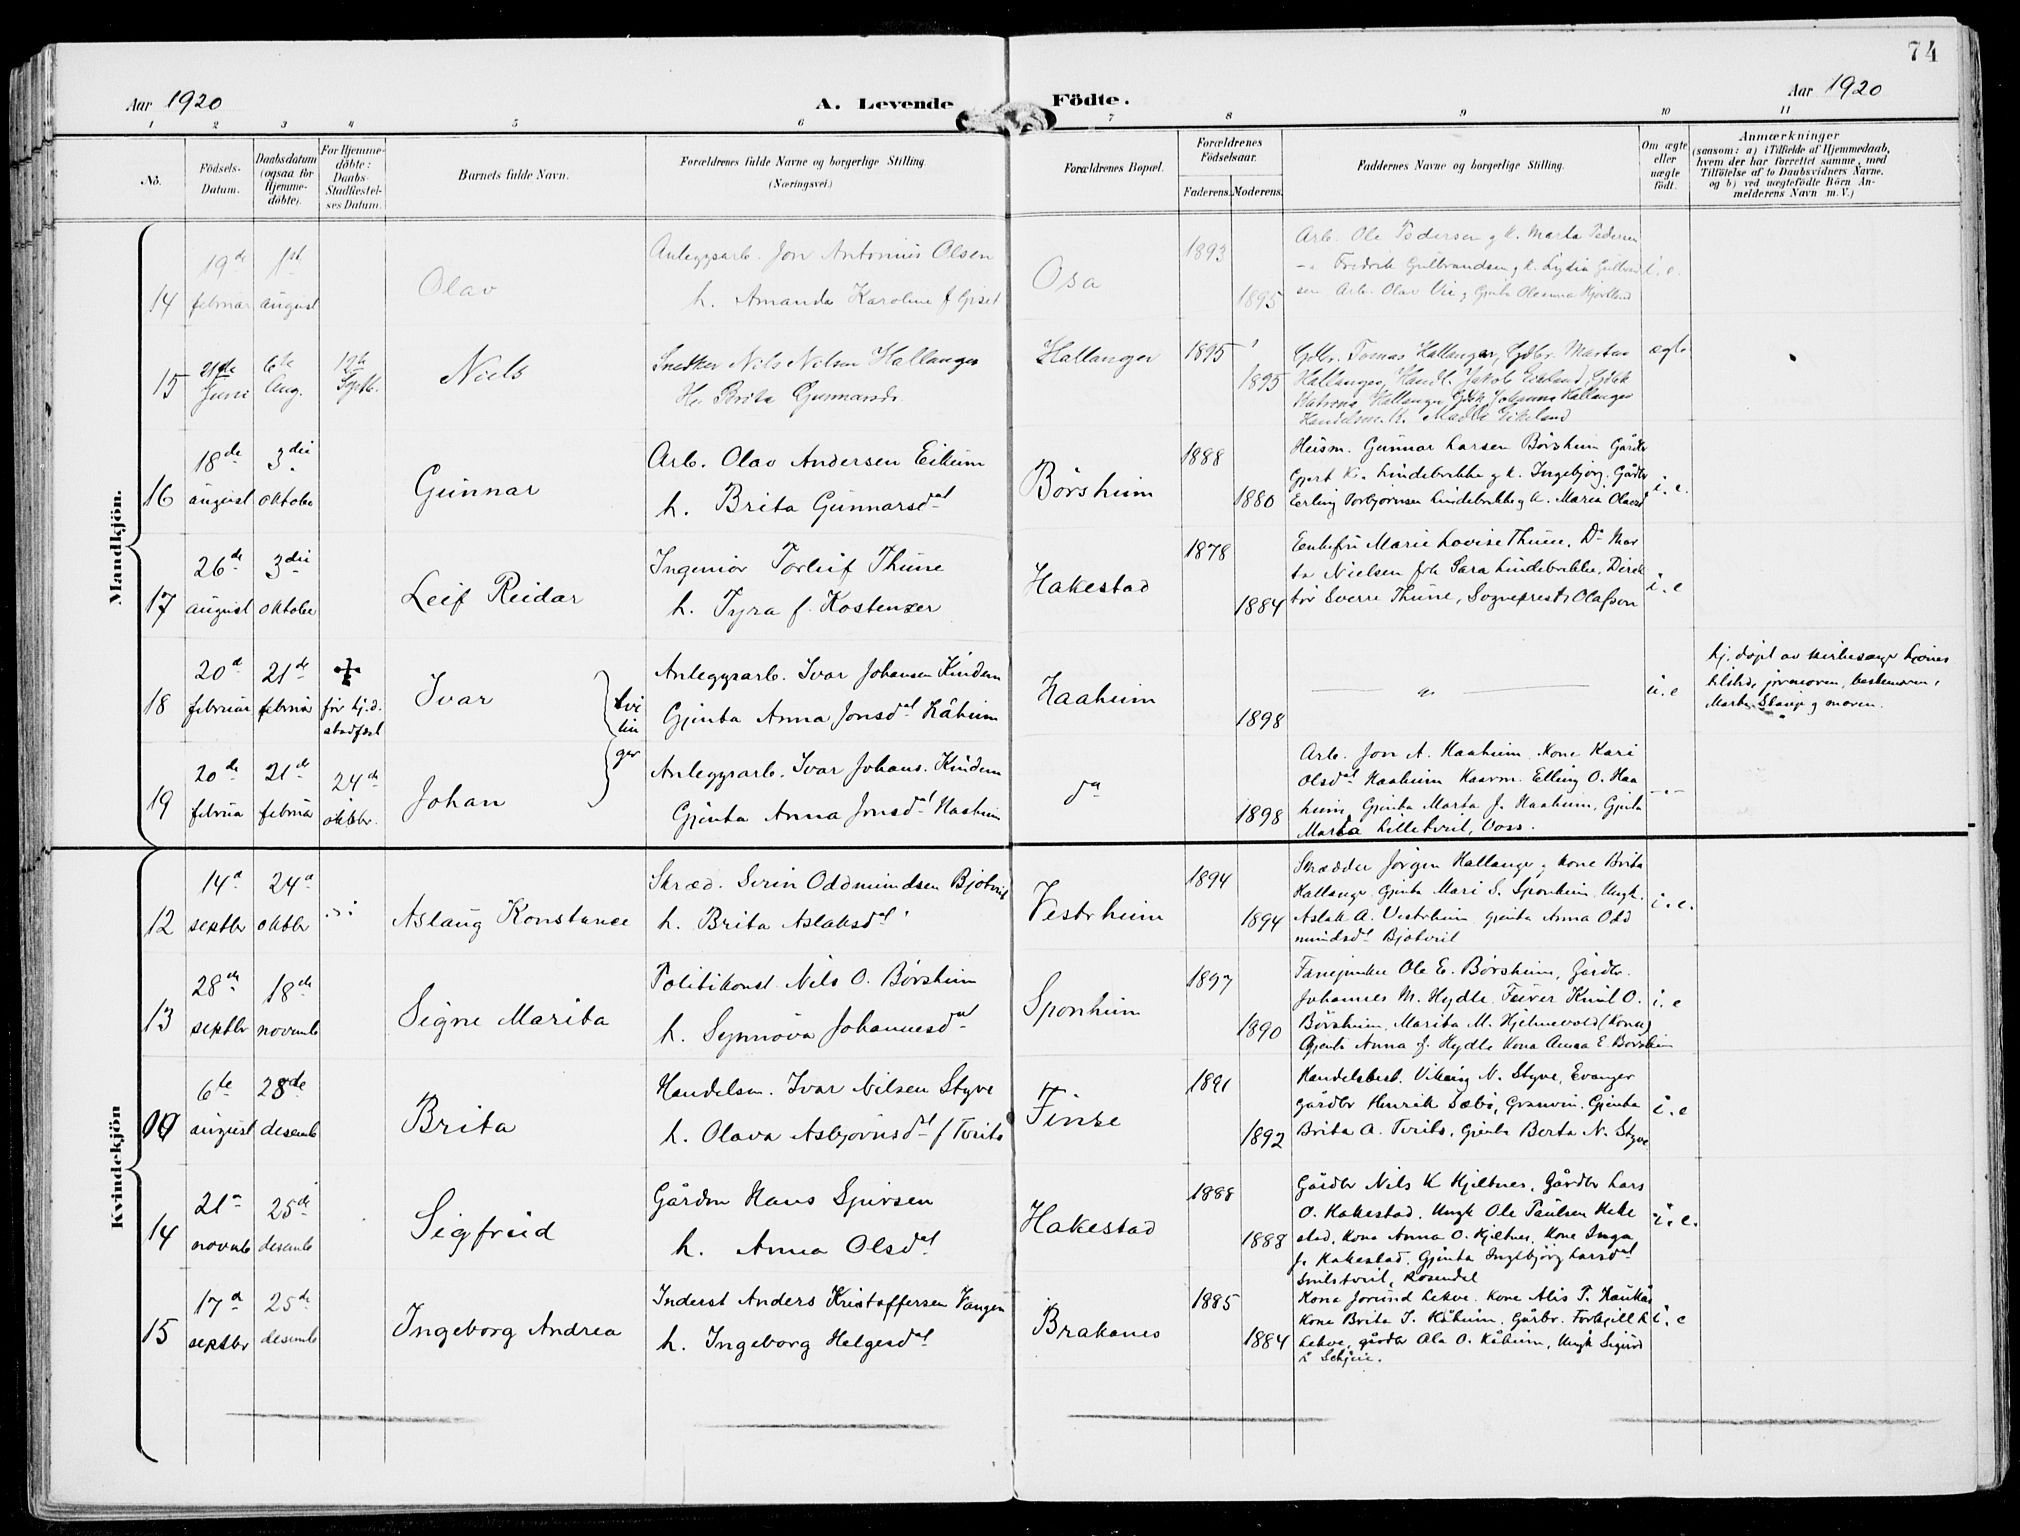 74
Aar 1920
A. Levende Födte.
Aar 1920
1 2 3 4 5 6 7 8 9 10 11
No.
Födsels-Datum.
Daabsdatum (ogsaa for Hjemme-döbte).
For Hjemme-döbte: Daabs-Stadfæstel-ses Datum.
Barnets fulde Navn.
Forældrenes fulde Navne og borgerlige Stilling. (Næringsvei.)
Forældrenes Bopæl.
Forældrenes Födselsaar.
Faderens. Moderens.
Faddernes Navne og borgerlige Stilling.
Om ægte eller uægte födt.
Anmærkninger
(saasom: a) i Tilfælde af Hjemmedaab,
hvem der har forrettet samme, med
Tilföielse af to Daabsvidners Navne,
og b) ved uægtefödte Börn An-
melderens Navn m. V.)
Mandkjön.
14 19de februar 1st august Olav
Anleggsarb. Jon Antonius Olsen
h. Amanda Karoline f.
Osa 1893 1895
Arb. Ole Pedersen g k. Marta Pedersen
Fredrik Gulbrandsen g k. Lydia
Arb. Olav
i. e.
15 21de Juni 6te Aug. 12te Septb. Niels
Snedker Nils Nilsen Hallanger
Hu Brita Gunnarsd.
Hallanger 1895 1895
Gdbr. Tomas Hallanger, Gdbr. Martin
Hallanger, Handl. Jakob
Hallanger Johanna Hallanger
Handelsm. K.
ægte
16 18de august 3die oktober Gunnar
Arb. Olav Andersen Eikum
h. Brita Gunnarsdat
Börsheim 1888 1880
Husm. Gunnar Larsen Börsheim Gårdbr
Lindebrekke g k. Ingebjörg. Gårdbr
Erling Torbjörnsen Lindebrekke g k. Maria Olavsd
i. e.
17 26de august 3die oktober Leif Reidar
Ingeniör Torleif Thune
h. Tyra f. Kostenzer
Hakestad 1878 1884
Enkefru Marie Lovise Thune. Do Mar
ta Nielsen frk Sara Lindebrekke, Direk
tör Sverre Thune, Sogneprest Olafson
i. e
18 20d februar 21de februar för hj.d. stadfest Ivar
Anleggsarb. Ivar Johansen Kindem
Gjenta Anna Jonsdat Håheim
tvi lin ger
Haaheim 1898
u. e
hj. döpt av kirkesanger
tilsted, jormoren, bestemoren,
Marta g moren.
19 20de februar 21de februar 24de oktober. Johan
Anleggsarb. Ivar Johans. Kindem
Gjenta Anna Jonsdat Haaheim
do 1898
Arb. Jon A. Haaheim. Kone Kari
Olsdat Haaheim Elling O. Haa
heim, Gjenta Marta J. Haaheim, Gjenta
Marta Lilletveit, Voss.
Kvindekjön
12 14d septbr 24d oktbr Aslaug Konstanse
Skræd. Severin Oddmundsen Bjotveit
h. Brita Aslaksdat
Vestrheim 1894 1894
Skrædder Jörgen Hallanger g kone Brita
Hallanger. Gjenta Mari S. Sponheim. Ungk.
Aslak A. Vestrheim gjenta Anna Odd
mundsdat Bjotveit
i. e.
13 28de septbr 18de novemb Signe Marita
Politikonst. Nils O. Börsheim
h. Synnöva Johannesdat
Sponheim 1897 1890
Ole E. Börsheim, Gårdbr.
Johannes M. Hydle. Knut O.
Börsheim, Marita M. Hjelmevold (Kona)
Gjenta Anna J. Hydle Kona Anna E. Börsheim
i. e
6te august 28de desemb Brita
Handelsm. Ivar Nilsen Styve
h. Olava Asbjörnsdat f Tveito
Finse 1891 1892
Handelsbest. Viking N. Styve, Evanger
gårdbr Henrik Sæbö, Granvin. Gjenta
Brita A. Tveito, Gjenta Berta N. Styve
i. e
14 21d novmb 25de desemb Sigfrid
Gårdm Hans Sjursen
h. Anna Olsdat
Hakestad 1888 1888
Gårdbr Nils K Kjeltnes, Gårdbr Lars
O. Hakestad. Ungk Ole Paulsen Hake
stad, kona Anna O. Kjeltnes, Kone Inga
J. Hakestad. Gjenta Ingebjörg Larsdat
Rosendal
i. e.
15 17d septbr 25de desemb Ingeborg Andrea
Inderst Anders Kristoffersen Vangen
h. Ingeborg Helgesdat
Brakanes 1885 1884
Kona Jorund Lekve. Kone Alis T.
Kone Brita J. Håheim. Gårbr. Torkjell H
Lekve, gårdbr Ola O. Håheim, Ungk Sigurd
i. e